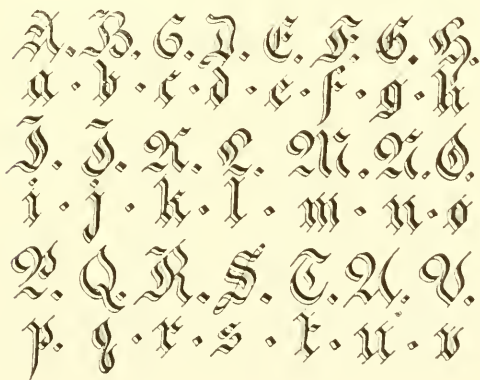 A. B. C. D. E. F. G. H.
a · b · c · d · e · f · g · h
I. J. K. L. M. N. O.
i · j · k · l · m · n · o
P. Q. R. S. T. U. V.
p · q · r · s · t · u · v